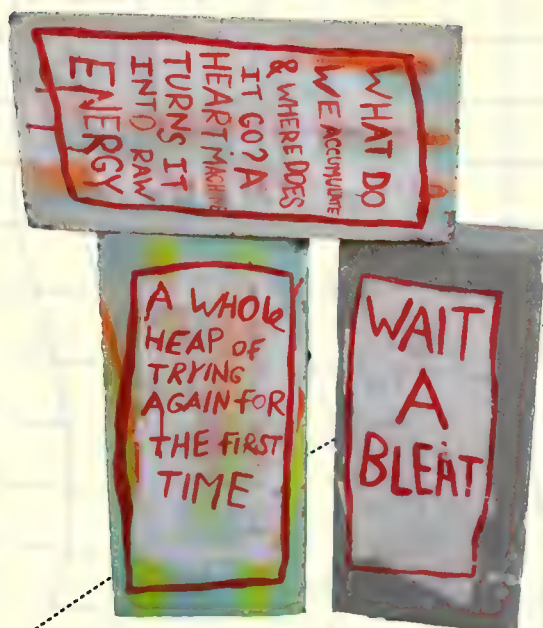 WHAT DO
WE ACCUMULATE
& WHERE DOES
IT GO? A
HEART MACHINE
TURNS IT
INTO RAW
ENERGY
A WHOLE
HEAP OF
TRYING
AGAIN FOR
THE FIRST
TIME
WAIT
A
BLEAT